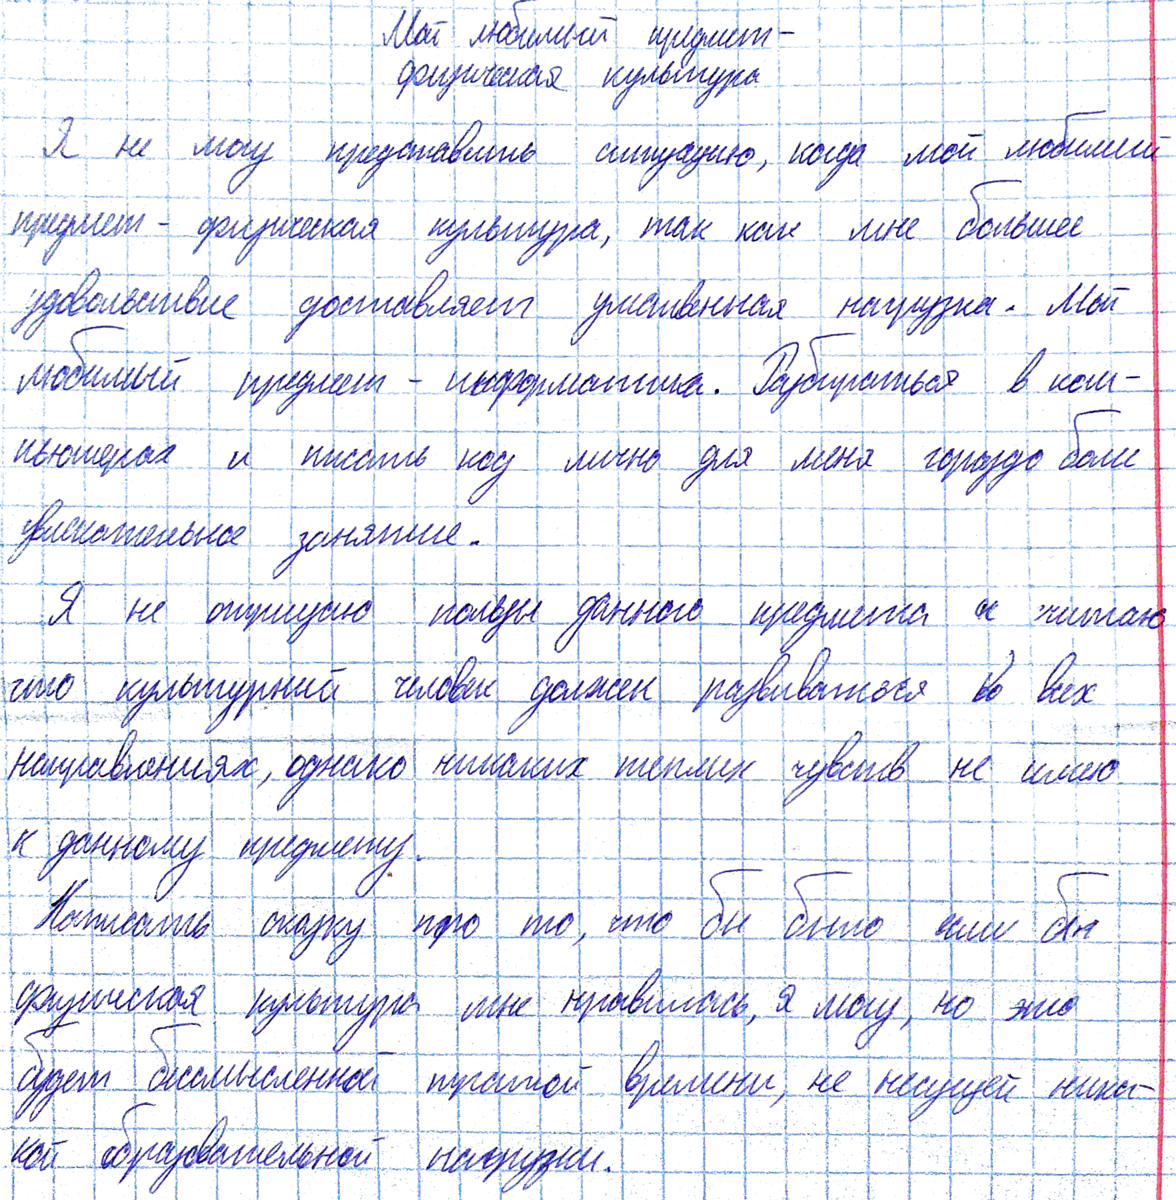 Мой любимый предмет-
физическая культура
Я не могу представить ситуацию, когда мой любимый
предмет - физическая культура, так как мне большее
удовольствие доставляет умственная нагрузка. Мой
любимый предмет - информатика. Разбираться в ком-
пьютерах и писать код лично для меня гораздо более
увлекательное занятие.
Я не отрицаю пользы данного предмета и читаю
что культурный человек должен развиваться во всех
направлениях, однако никаких теплых чувств не имею
к данному предмету.
Написать сказку про то, что бы было если бы
физическая культура мне нравилась, я могу, но это
будет бессмысленной тратой времени, не несущей ника-
кой образовательной нагрузки.